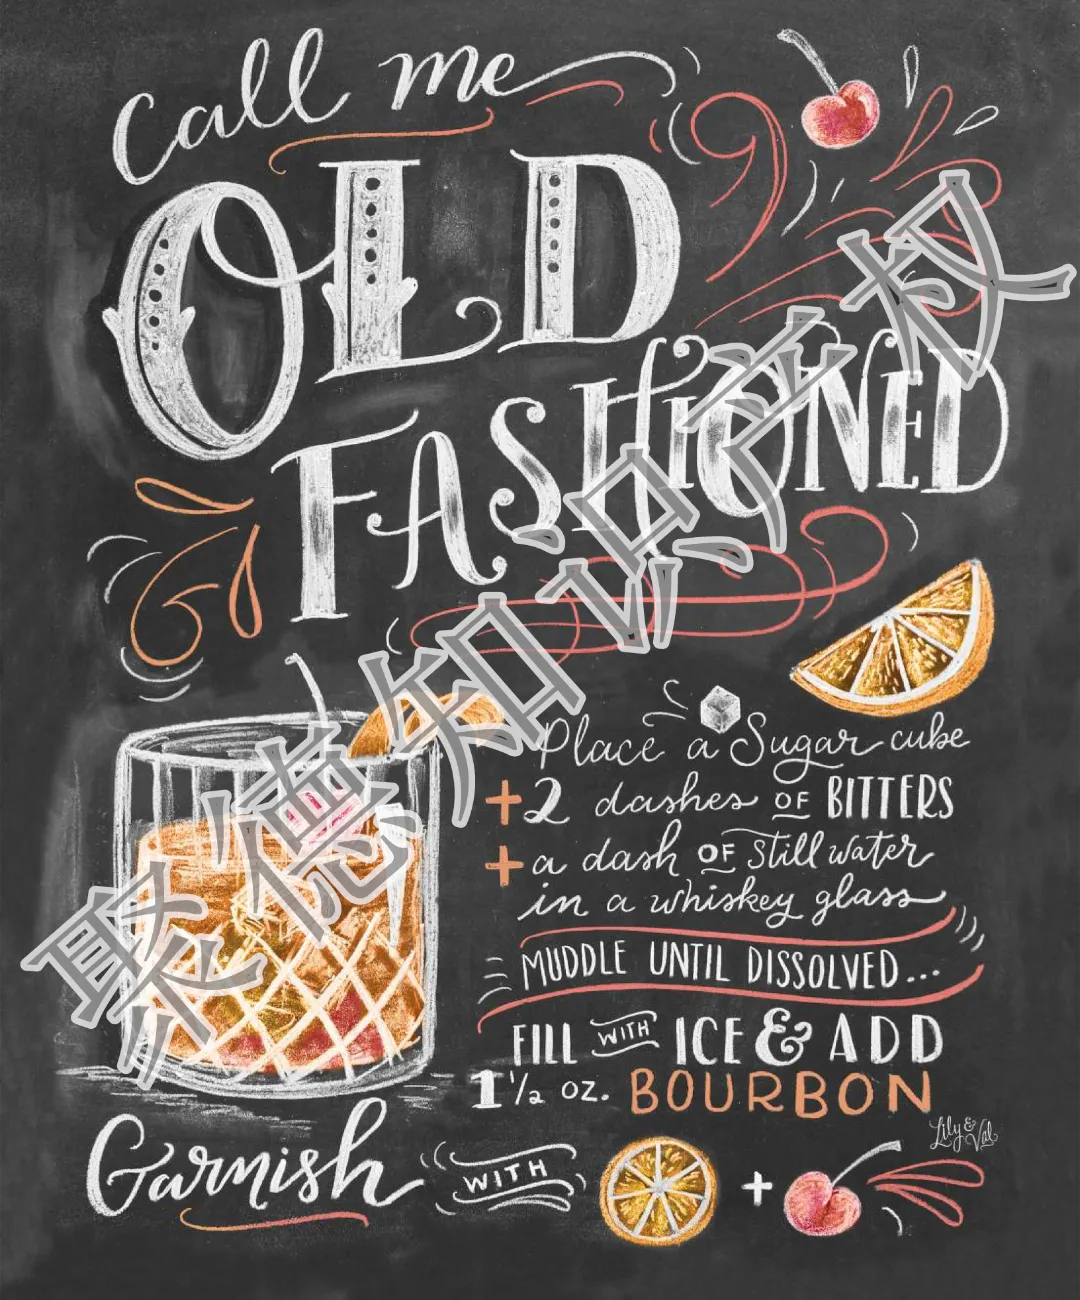 call me
OLD
FASHIONED
Place a Sugar cube
+2 dashes OF BITTERS
+a dash OF still water
in a whiskey glass
MUDDLE UNTIL DISSOLVED...
FILL WITH ICE & ADD
1 1/2 oz. BOURBON
Lily & Val
Garnish WITH +
聚德知识产权